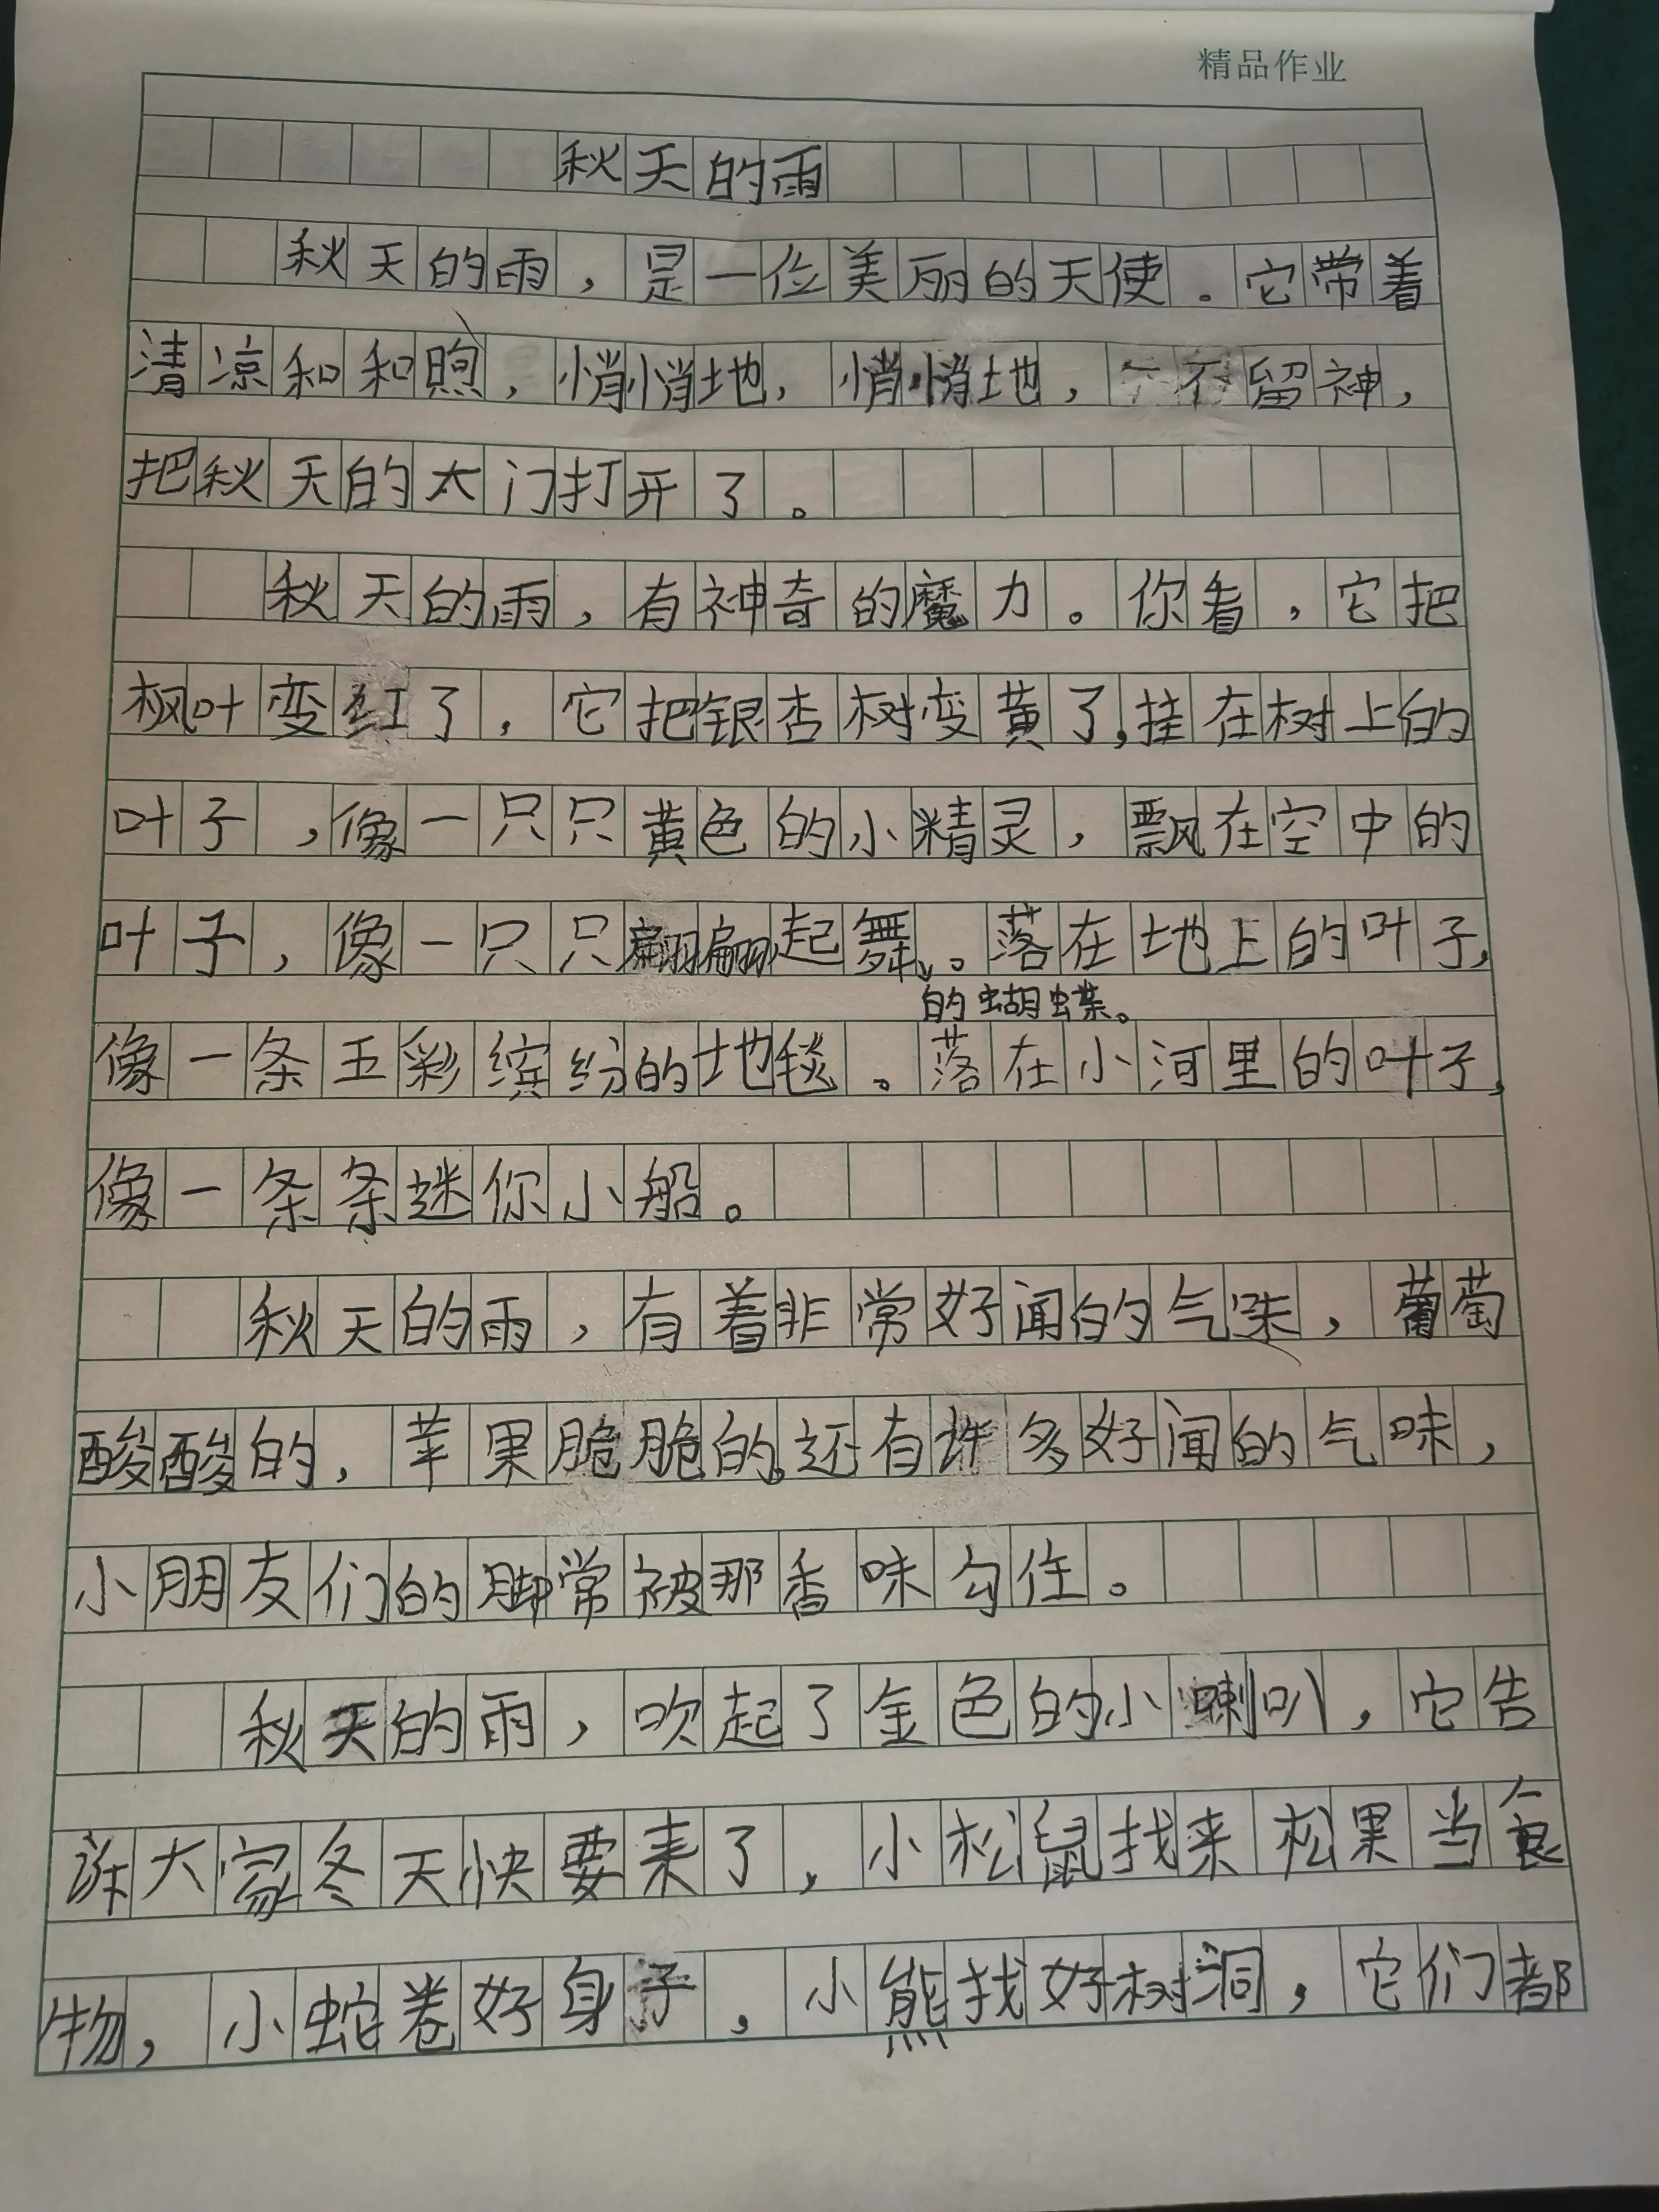 精品作业
秋天的雨
秋天的雨，是一位美丽的天使。它带着
清凉和和煦，悄悄地，悄悄地，不留神，
把秋天的大门打开了。
秋天的雨，有神奇的魔力。你看，它把
枫叶变红了，它把银杏树变黄了，挂在树上的
叶子，像一只只黄色的小精灵，飘在空中的
叶子，像一只只翩翩起舞。落在地上的叶子，
的蝴蝶。
像一条五彩缤纷的地毯。落在小河里的叶子，
像一条条迷你小船。
秋天的雨，有着非常好闻的气味，葡萄
酸酸的，苹果脆脆的。还有许多好闻的气味，
小朋友们的脚常被那香味勾住。
秋天的雨，吹起了金色的小喇叭，它告
诉大家冬天快要来了，小松鼠找来松果当食
物，小蛇卷好身子，小熊找好树洞，它们都